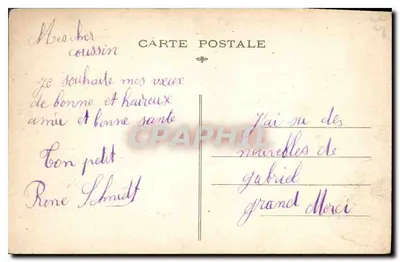 CARTE POSTALE
Mes cher
coussin
Je souhaite mes vœux
de bonne et haireux
année et bonne santé
Ton petit
René Schmidt
J'ai su des
nouvelles de
gabriel
grand Merci